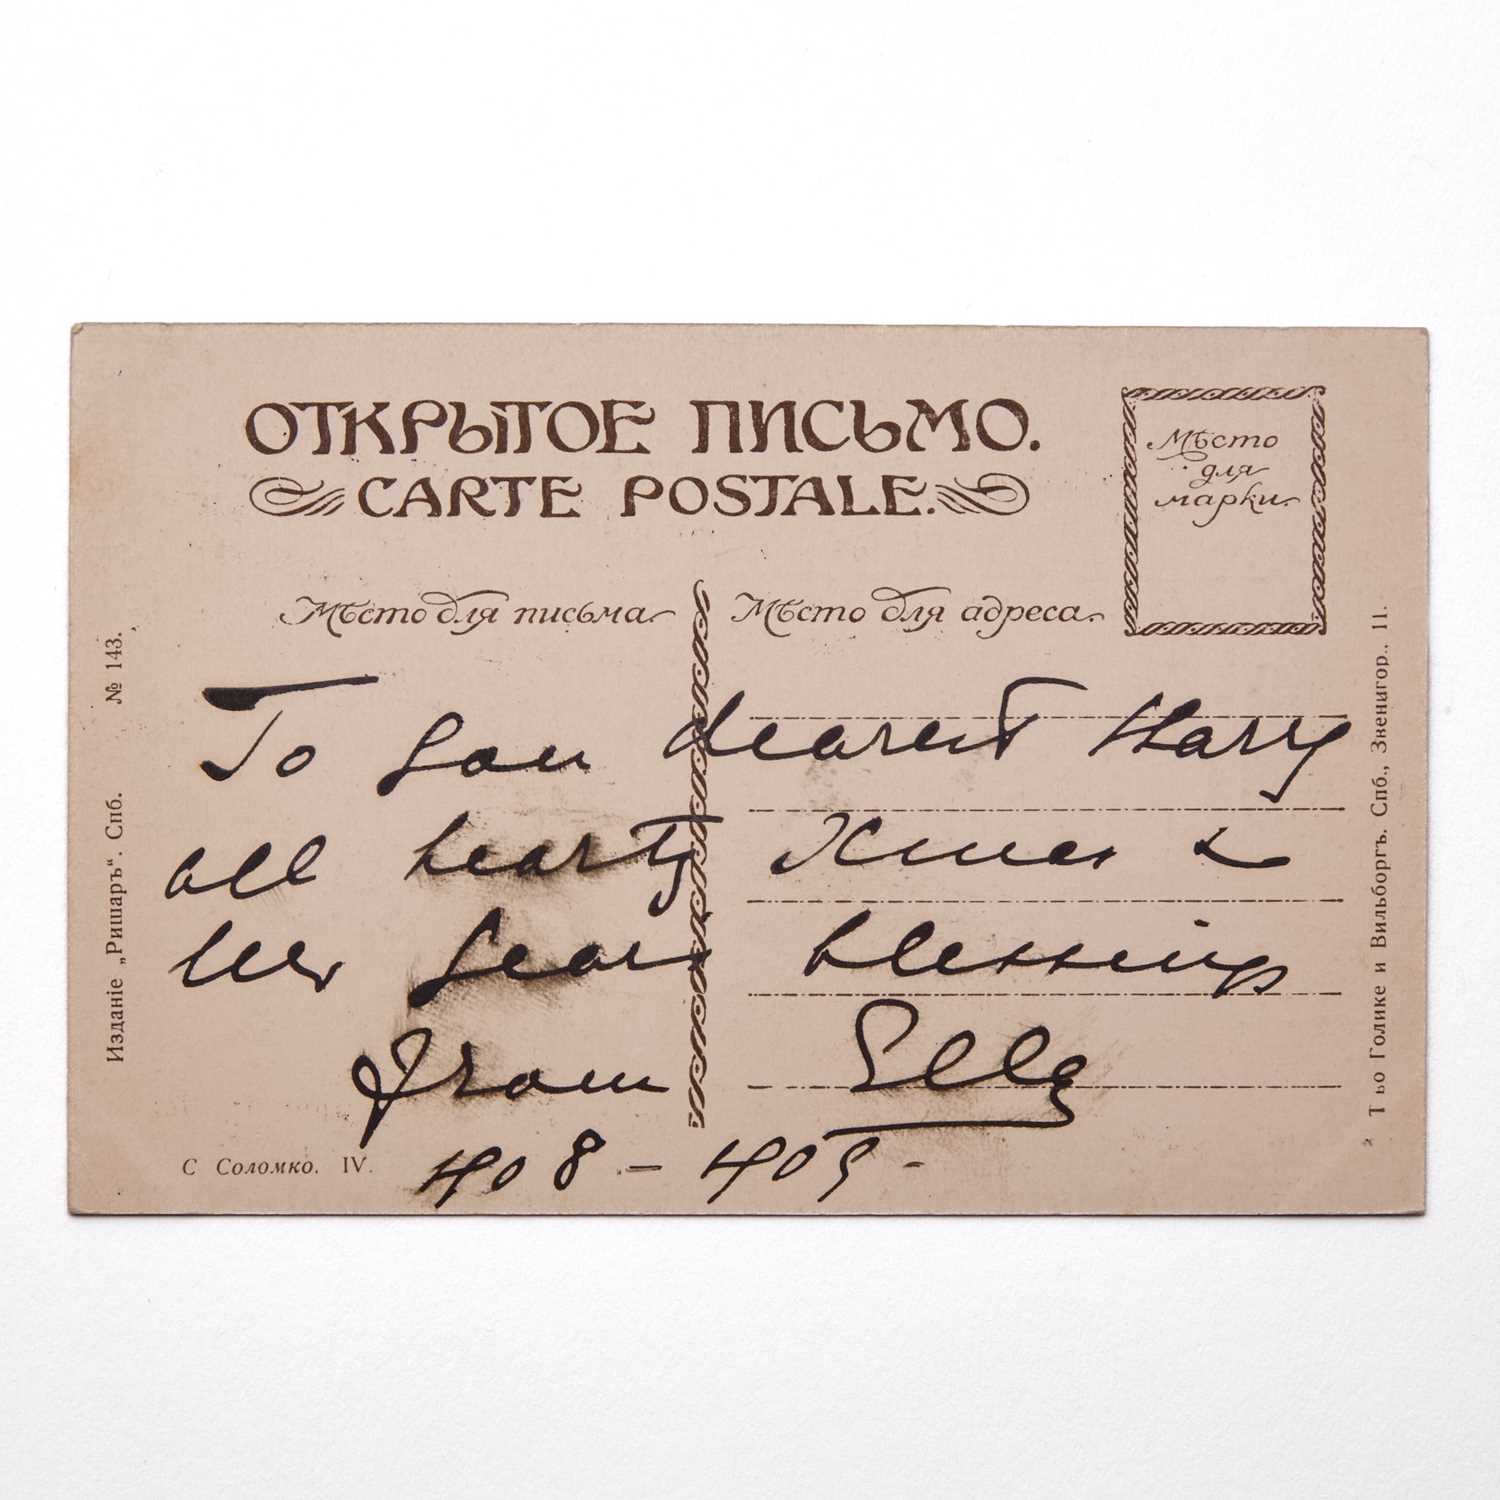 ОТКРЫТОЕ ПИСЬМО.
CARTE POSTALE.
Мѣсто
для
марки.
Мѣсто для письма
Мѣсто для адреса.
To you dearest Harry
all hearty Xmas &
New Years blessings
from Elly
1908 – 1909 -
С Соломко. IV.
Изданіе „Ришаръ“. Спб. № 143.
Т-во Голике и Вильборгъ. Спб., Звенигор., 11.